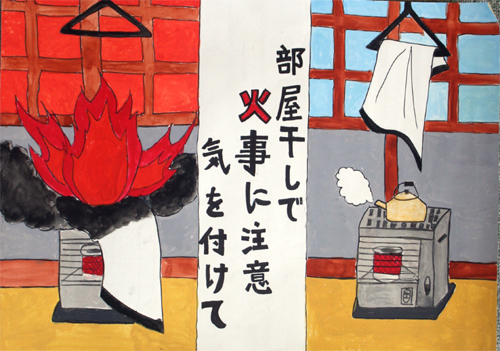 部屋干しで
火事に注意
気を付けて